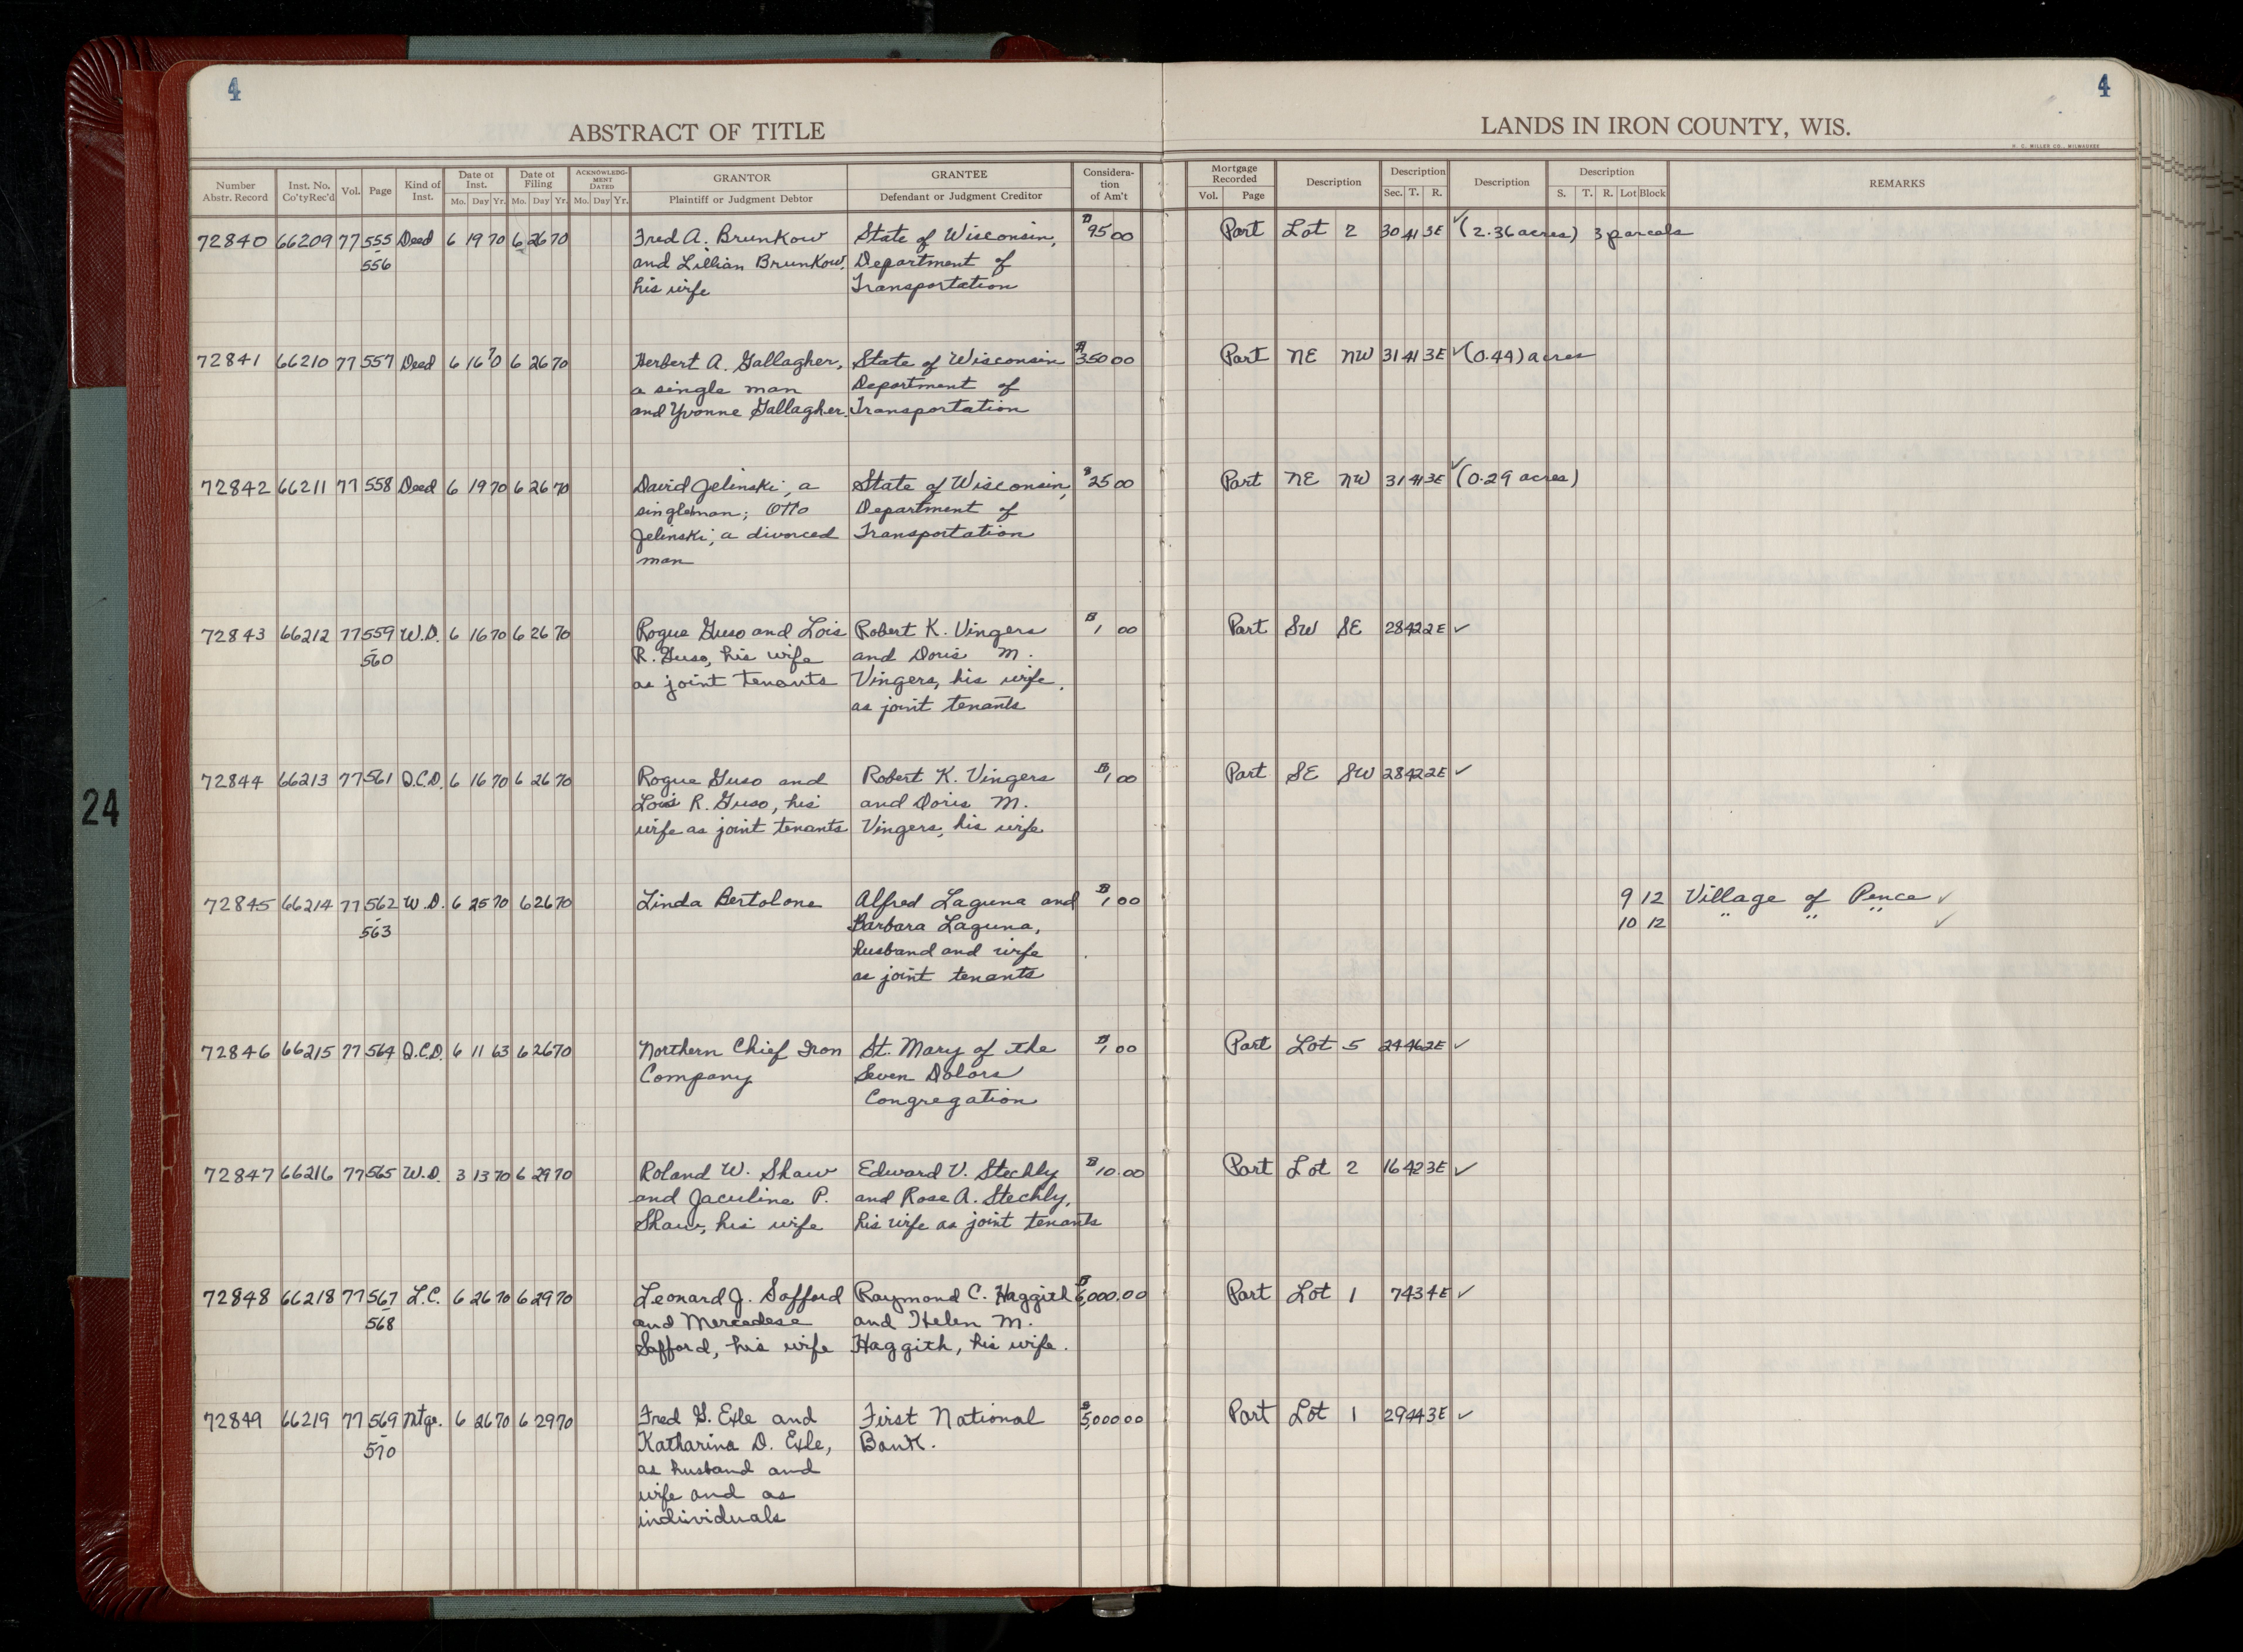 4
4
ABSTRACT OF TITLE
LANDS IN IRON COUNTY, WIS.
H. C. MILLER CO., MILWAUKEE
Number Abstr. Record
Inst. No. Co'ty Rec'd
Vol.
Page
Kind of Inst.
Date of Inst. Mo. Day Yr.
Date of Filing Mo. Day Yr.
ACKNOWLEDGMENT DATED Mo. Day Yr.
GRANTOR Plaintiff or Judgment Debtor
GRANTEE Defendant or Judgment Creditor
Consideration of Am't
Mortgage Recorded Vol. Page
Description
Description Sec. T. R.
Description
Description S. T. R. Lot Block
REMARKS
72840 66209 77 555 Deed 6 19 70 6 26 70 Fred A. Brunkow State of Wisconsin, $95 00 Part Lot 2 30 41 3E ✓ (2.36 acres) 3 parcels
556 and Lillian Brunkow, Department of
his wife Transportation
72841 66210 77 557 Deed 6 16 70 6 26 70 Herbert A. Gallagher, State of Wisconsin $350 00 Part NE NW 31 41 3E ✓ (0.44) acres
a single man Department of
and Yvonne Gallagher. Transportation
72842 66211 77 558 Deed 6 19 70 6 26 70 David Jelinski, a State of Wisconsin, $25 00 Part NE NW 31 41 3E ✓ (0.29 acres)
single man; Otto Department of
Jelinski, a divorced Transportation
man
72843 66212 77 559 W.D. 6 16 70 6 26 70 Rogue Guso and Lois Robert K. Vingers $1 00 Part SW SE 28 42 2E ✓
560 R. Guso, his wife and Doris M.
as joint tenants Vingers, his wife,
as joint tenants
72844 66213 77 561 Q.C.D. 6 16 70 6 26 70 Rogue Guso and Robert K. Vingers $1 00 Part SE SW 28 42 2E ✓
Lois R. Guso, his and Doris M.
wife as joint tenants Vingers, his wife
72845 66214 77 562 W.D. 6 25 70 6 26 70 Linda Bertolone Alfred Laguna and $1 00 9 12 Village of Pence ✓
563 Barbara Laguna, 10 12 " " " ✓
husband and wife
as joint tenants
72846 66215 77 564 Q.C.D. 6 11 63 6 26 70 Northern Chief Iron St. Mary of the $1 00 Part Lot 5 24 46 2E ✓
Company Seven Dolors
Congregation
24
72847 66216 77 565 W.D. 3 13 70 6 29 70 Roland W. Shaw Edward V. Stechly $10 00 Part Lot 2 16 42 3E ✓
and Jaculine P. and Rose A. Stechly,
Shaw, his wife his wife as joint tenants
72848 66218 77 567 L.C. 6 26 70 6 29 70 Leonard J. Safford Raymond C. Haggith $6,000.00 Part Lot 1 7 43 4E ✓
568 and Mercedese and Helen M.
Safford, his wife Haggith, his wife.
72849 66219 77 569 Mtge. 6 26 70 6 29 70 Fred G. Exle and First National $5,000 00 Part Lot 1 29 44 3E ✓
570 Katharina D. Exle, Bank.
as husband and
wife and as
individuals